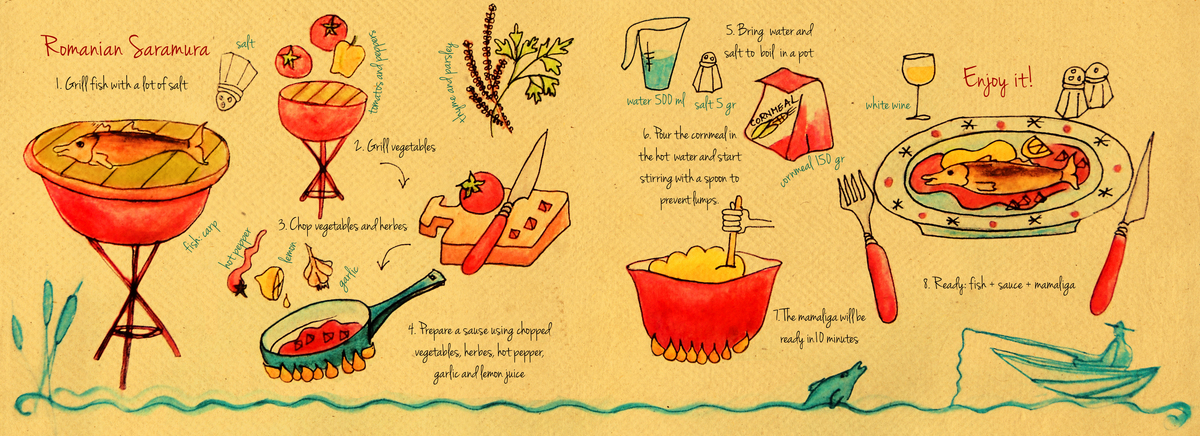 Romanian Saramura
1. Grill fish with a lot of salt
salt
fish: carp
tomatos and peppers
2. Grill vegetables
thyme and parsley
3. Chop vegetables and herbes
hot pepper
lemon
garlic
4. Prepare a sause using chopped
vegetables, herbes, hot pepper,
garlic and lemon juice
water 500 ml
salt 5 gr
5. Bring water and
salt to boil in a pot
CORNMEAL
cornmeal 150 gr
6. Pour the cornmeal in
the hot water and start
stirring with a spoon to
prevent lumps.
7. The mamaliga will be
ready in 10 minutes
white wine
Enjoy it!
8. Ready: fish + sauce + mamaliga